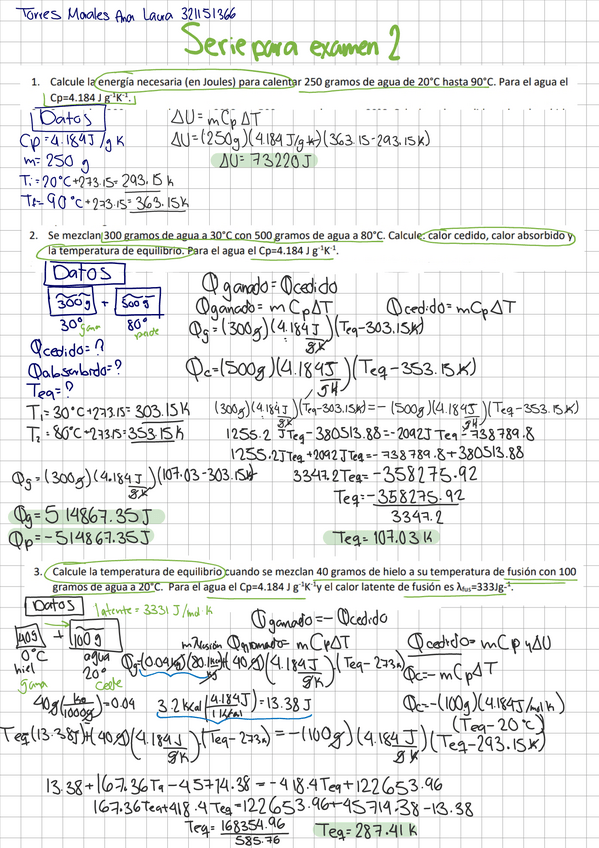 Torres Morales Ana Laura 321151366
Serie para examen 2
1. Calcule la energía necesaria (en Joules) para calentar 250 gramos de agua de 20°C hasta 90°C. Para el agua el
Cp=4.184 J g⁻¹K⁻¹.
Datos
Cp=4.184J/g K
m=250 g
T₁=20°C+273.15=293.15 K
T₂=90°C+273.15=363.15K
ΔU=mCpΔT
ΔU=(250g)(4.184 J/g K)(363.15-293.15K)
ΔU=73220J
2. Se mezclan 300 gramos de agua a 30°C con 500 gramos de agua a 80°C. Calcule: calor cedido, calor absorbido y
la temperatura de equilibrio. Para el agua el Cp=4.184 J g⁻¹K⁻¹.
Datos
300g + 500g
30° gana 80° pierde
Qcedido=?
Qabsorbido=?
Teq=?
T₁=30°C+273.15=303.15K
T₂=80°C+273.15=353.15K
Qganado=Qcedido
Qganado=mCpΔT Qcedido=mCpΔT
Qg=(300g)(4.184J/gK)(Teq-303.15K)
Qc=(500g)(4.184J/gK)(Teq-353.15K)
(300g)(4.184J/gK)(Teq-303.15K)=-(500g)(4.184J/gK)(Teq-353.15K)
1255.2 JTeq-380513.88=-2092J Teq-738789.8
1255.2JTeq+2092JTeq=-738789.8+380513.88
3347.2Teq=-358275.92
Teq=-358275.92/3347.2
Teq=107.03 K
Qg=(300g)(4.184J/gK)(107.03-303.15K)
Qg=514867.35J
Qp=-514867.35J
3. Calcule la temperatura de equilibrio cuando se mezclan 40 gramos de hielo a su temperatura de fusión con 100
gramos de agua a 20°C. Para el agua el Cp=4.184 J g⁻¹K⁻¹y el calor latente de fusión es λfus=333Jg⁻¹.
Datos latente=3331 J/mol K
40g + 100g
0°C agua
hiel 20°
gana cede
40g(kg/1000g)=0.04
Qganado=-Qcedido
mλfusión Qganado=mCpΔT Qcedido=mCpyΔU
Qg=(0.04kg)(80.1kcal/kg)+(40g)(4.184J/gK)(Teq-273K) Qc=-mCpΔT
3.2kcal(4.184J/1kcal)=13.38 J Qc=-(100g)(4.184J/mol K)
(Teq-20°C)
Teq(13.38J)+(40g)(4.184J/gK)(Teq-273K)=-(100g)(4.184J/gK)(Teq-293.15K)
13.38+167.36Tq-45714.38=-418.4Teq+122653.96
167.36Teq+418.4Teq=122653.96+45714.38-13.38
Teq=168354.96/585.76
Teq=287.41 K